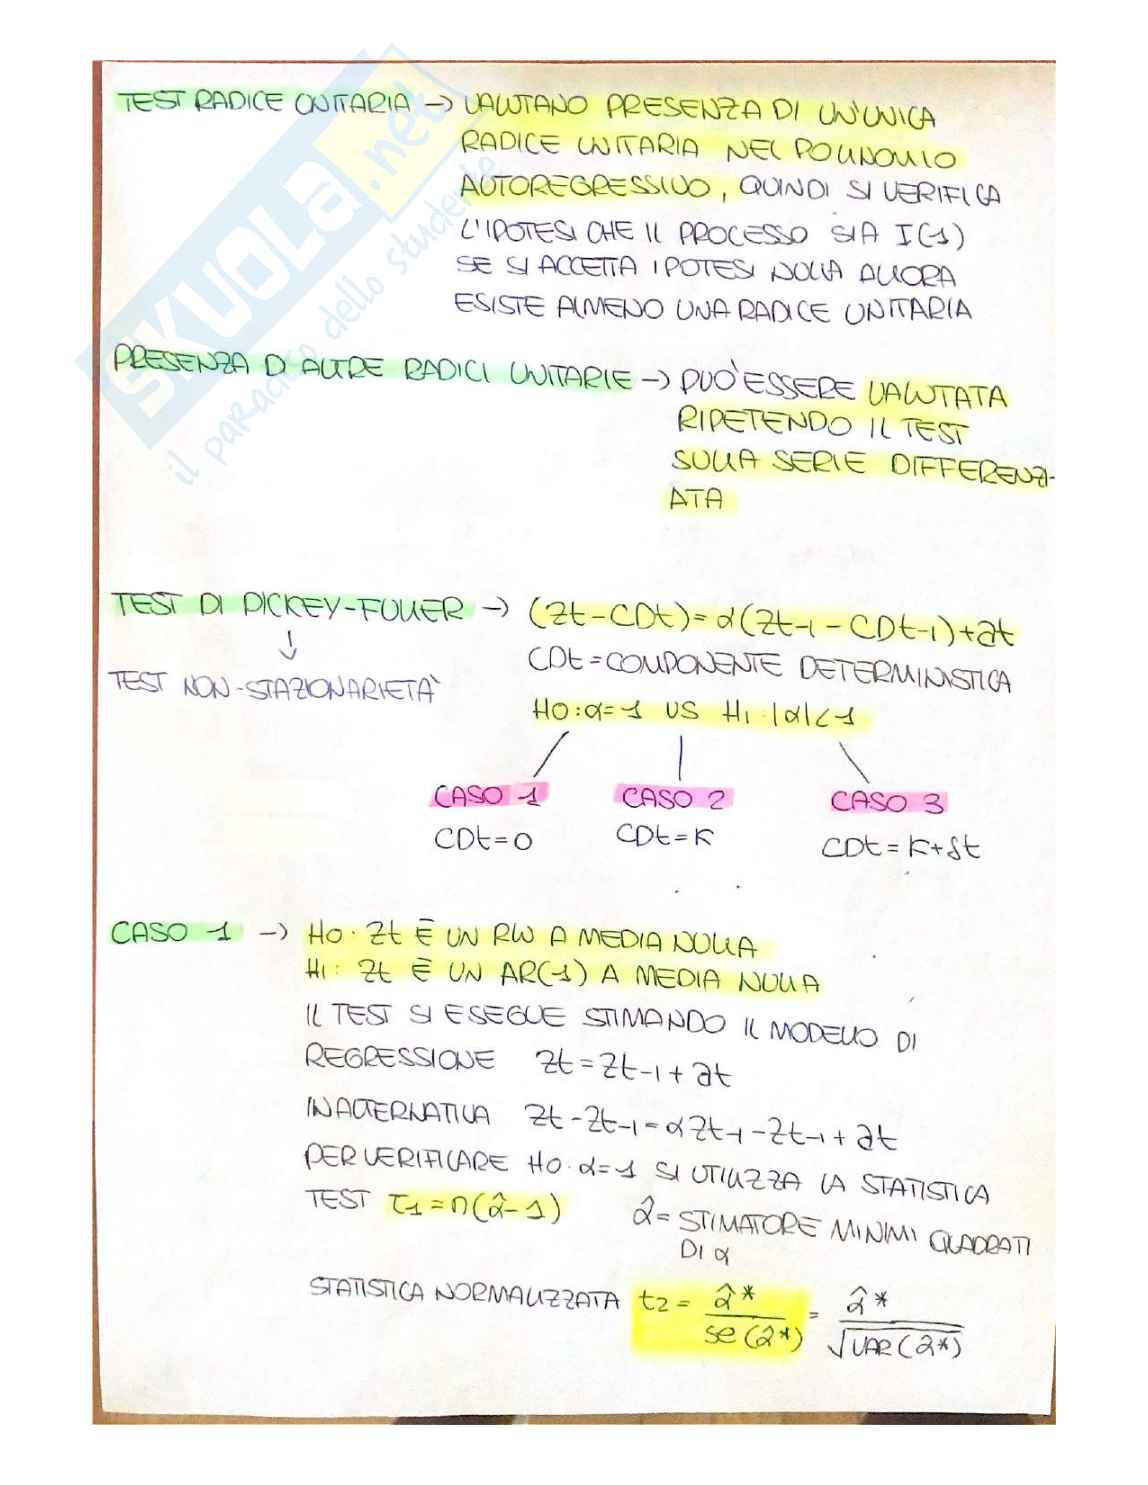 TEST RADICE UNITARIA → VALUTANO PRESENZA DI UN'UNICA
RADICE UNITARIA NEL POLINOMIO
AUTOREGRESSIVO, QUINDI SI VERIFICA
L'IPOTESI CHE IL PROCESSO SIA I(1)
SE SI ACCETTA IPOTESI NULLA ALLORA
ESISTE ALMENO UNA RADICE UNITARIA
PRESENZA D ALTRE RADICI UNITARIE → PUO' ESSERE VALUTATA
RIPETENDO IL TEST
SULLA SERIE DIFFERENZI-
ATA
TEST DI DICKEY-FULLER → (Zt-CDt)=α(Zt-1-CDt-1)+at
↓
CDt=COMPONENTE DETERMINISTICA
TEST NON-STAZIONARIETA'
H0:α=1 VS H1:|α|<1
CASO 1 CASO 2 CASO 3
CDt=0 CDt=K CDt=K+δt
CASO 1 → H0: Zt È UN RW A MEDIA NULLA
H1: Zt È UN AR(1) A MEDIA NULLA
IL TEST SI ESEGUE STIMANDO IL MODELLO DI
REGRESSIONE Zt=Zt-1+at
IN ALTERNATIVA Zt-Zt-1=αZt-1-Zt-1+at
PER VERIFICARE H0:α=1 SI UTILIZZA LA STATISTICA
TEST τ1=n(α̂-1) α̂=STIMATORE MINIMI QUADRATI
DI α
STATISTICA NORMALIZZATA t2 = α̂*/se(α̂*) = α̂*/√VAR(α̂*)
SKUOLA.net
il paradiso dello studente